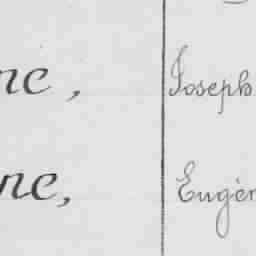 ne, Joseph
ne, Eugèn